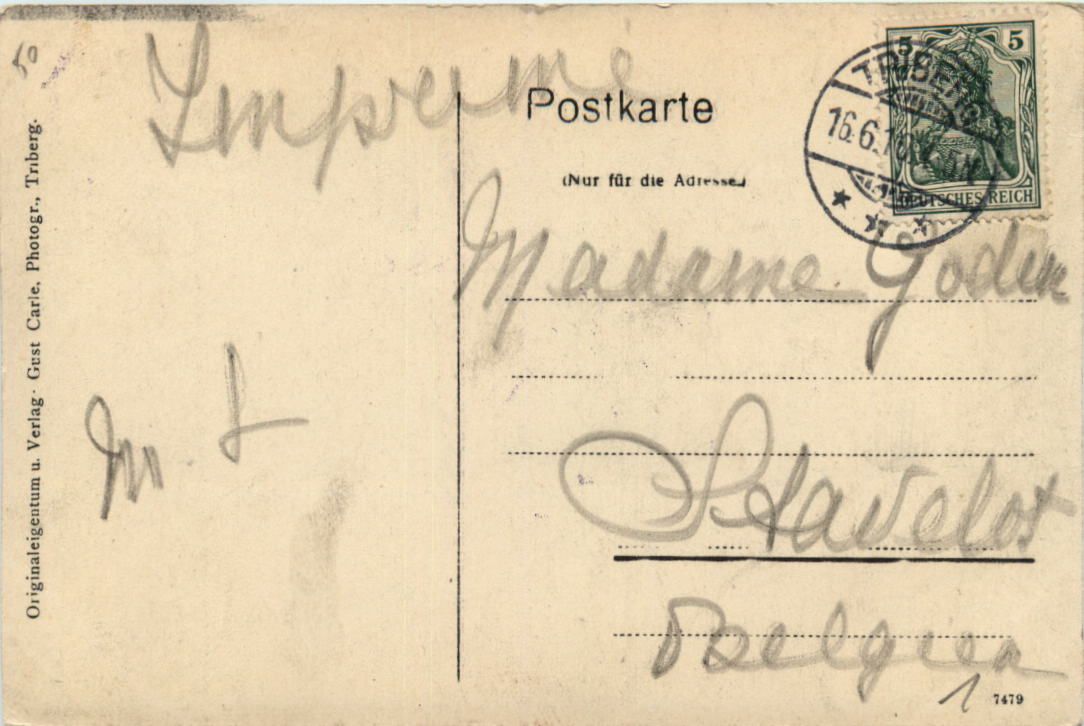 50
Imprimé
Postkarte
(Nur für die Adresse)
5 5
TRIBERG
16.6.10
DEUTSCHES REICH
Madame Godin
Stavelot
Belgien
1
7479
Originaleigentum u. Verlag · Gust Carle, Photogr., Triberg.